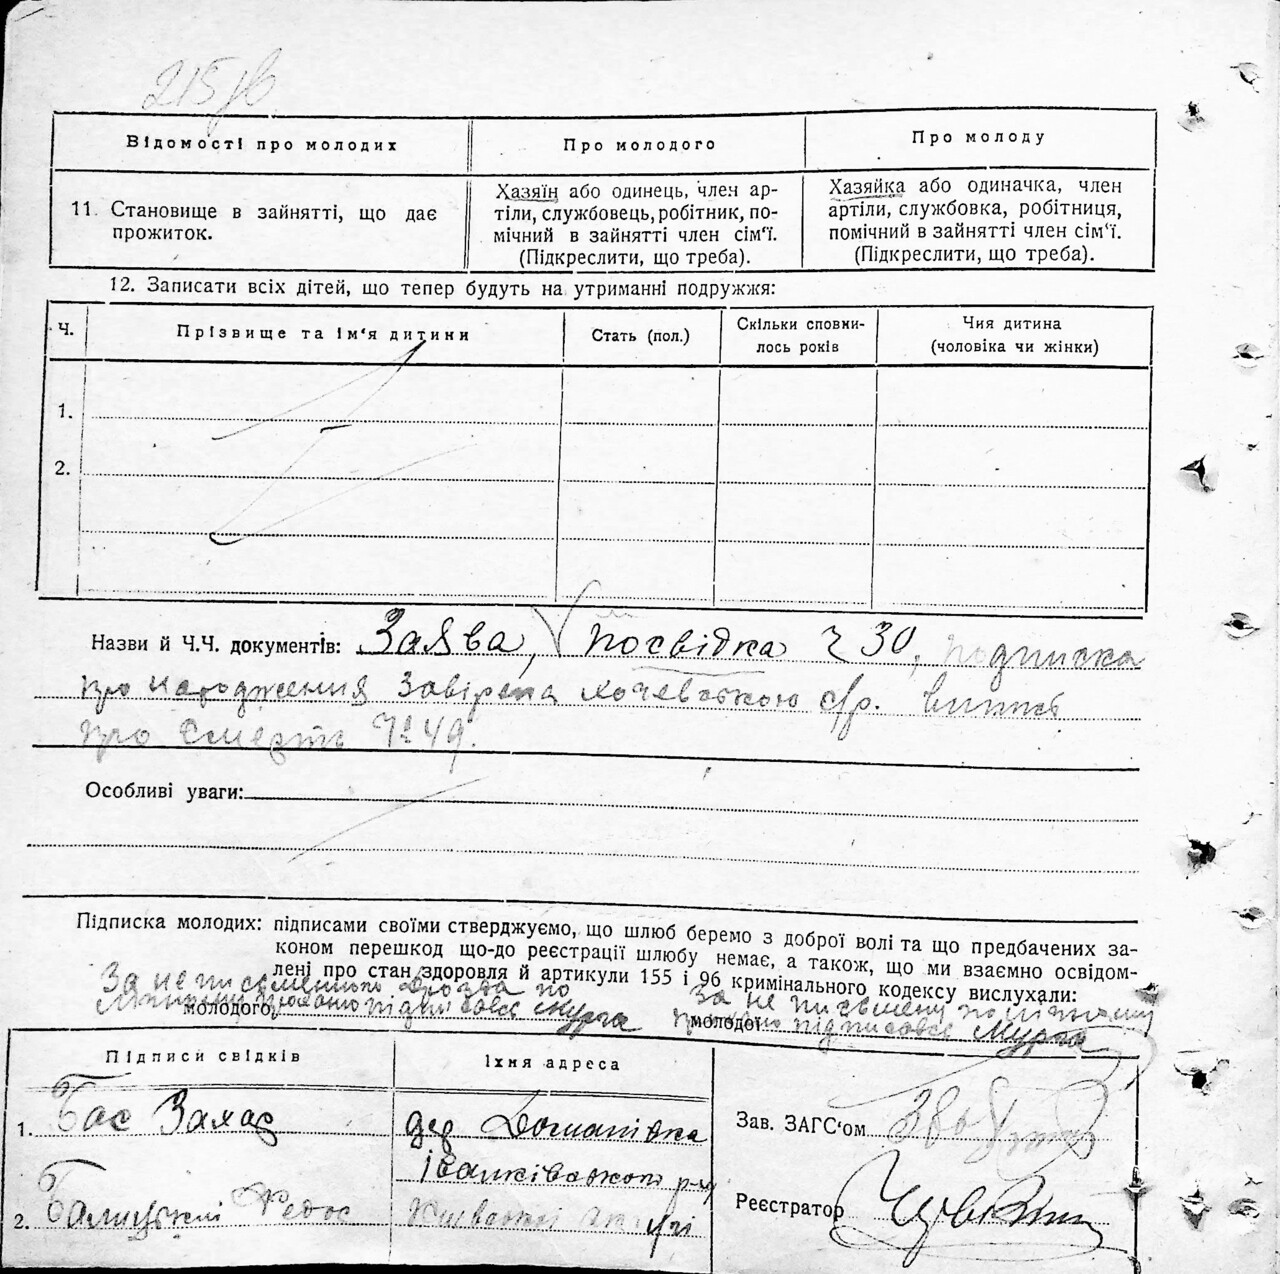 215
Відомості про молодих
Про молодого
Про молоду
11. Становище в зайнятті, що дає
прожиток.
Хазяїн або одинець, член ар-
тіли, службовець, робітник, по-
мічний в зайнятті член сім‘ї.
(Підкреслити, що треба).
Хазяйка або одиначка, член
артіли, службовка, робітниця,
помічний в зайнятті член сім‘ї.
(Підкреслити, що треба).
12. Записати всіх дітей, що тепер будуть на утриманні подружжя:
Ч.
Прізвище та ім‘я дитини
Стать (пол.)
Скільки сповни-
лось років
Чия дитина
(чоловіка чи жінки)
1.
2.
Назви й Ч.Ч. документів: Заява, посвідка ч 30, подписка
про народження завірена с/р. витяг
про смерть № 49.
Особливі уваги:
Підписка молодих: підписами своїми стверджуємо, що шлюб беремо з доброї волі та що предбачених за-
коном перешкод що-до реєстрації шлюбу немає, а також, що ми взаємно освідом-
лені про стан здоровля й артикули 155 і 96 кримінального кодексу вислухали:
За не письменного по
молодого підписався Мурга
За не письмену по
молодої підписався Мурга
Підписи свідків
Їхня адреса
1. Бас Захар
дер Доманівка
Іванківського р-ну
2. Федос
Київської
Зав. ЗАГС‘ом
Реєстратор